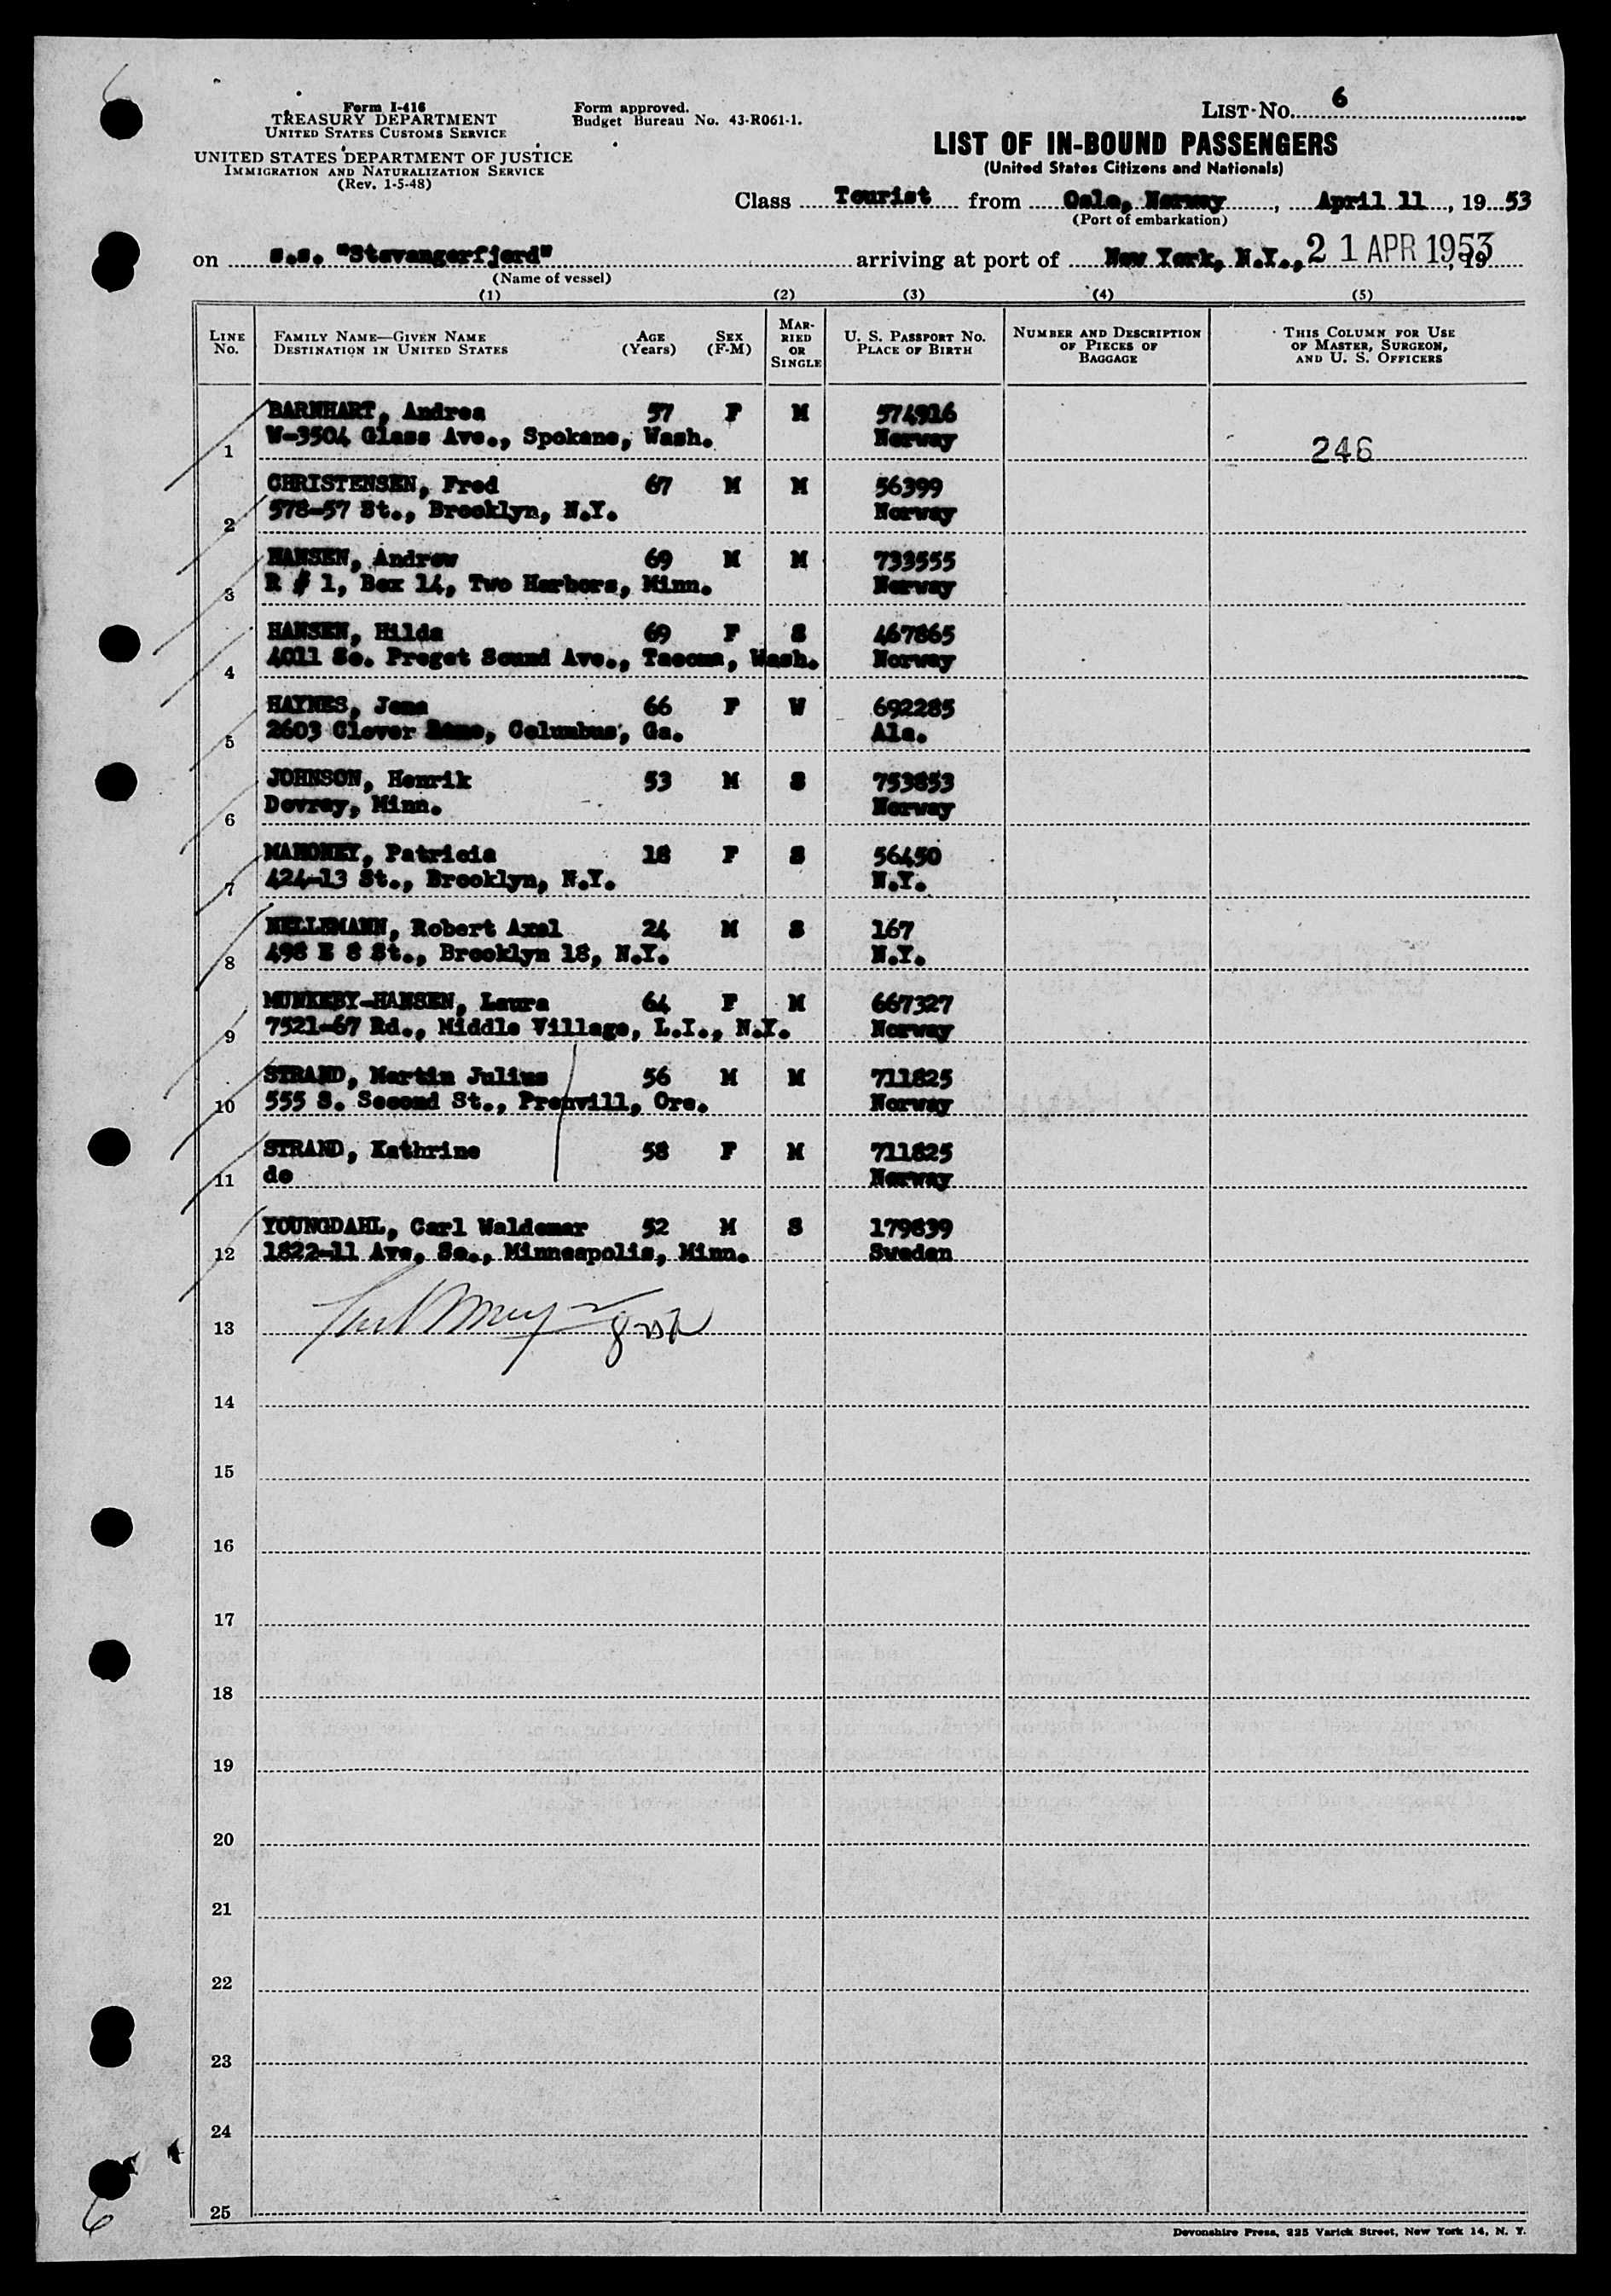 6
Form I-416
TREASURY DEPARTMENT
UNITED STATES CUSTOMS SERVICE
UNITED STATES DEPARTMENT OF JUSTICE
IMMIGRATION AND NATURALIZATION SERVICE
(Rev. 1-5-48)
Form approved.
Budget Bureau No. 43-R061-1.
LIST No. 6
LIST OF IN-BOUND PASSENGERS
(United States Citizens and Nationals)
Class Tourist from Oslo, Norway, April 11, 1953
(Port of embarkation)
on s.s. "Stavangerfjord" arriving at port of New York, N.Y., 21 APR 1953, 19
(Name of vessel)
(1) (2) (3) (4) (5)
LINE No. FAMILY NAME—GIVEN NAME DESTINATION IN UNITED STATES AGE (Years) SEX (F-M) MARRIED OR SINGLE U. S. PASSPORT NO. PLACE OF BIRTH NUMBER AND DESCRIPTION OF PIECES OF BAGGAGE THIS COLUMN FOR USE OF MASTER, SURGEON, AND U. S. OFFICERS
BARNHART, Andrea 57 F M 574916
1 W-3504 Glass Ave., Spokane, Wash. Norway 246
CHRISTENSEN, Fred 67 M M 56399
2 578-57 St., Brooklyn, N.Y. Norway
HANSEN, Andrew 69 M M 733555
3 R # 1, Box 14, Two Harbors, Minn. Norway
HANSEN, Hilda 69 F S 467865
4 4011 So. Preget Sound Ave., Tacoma, Wash. Norway
HAYNES, Jena 66 F W 692285
5 2603 Glover, Columbus, Ga. Ala.
JOHNSON, Henrik 53 M S 753853
6 Dovray, Minn. Norway
MAHONEY, Patricia 18 F S 56450
7 424-13 St., Brooklyn, N.Y. N.Y.
NELLEMANN, Robert Axel 24 M S 167
8 498 E 8 St., Brooklyn 18, N.Y. N.Y.
MUNKEBY-HANSEN, Laura 64 F M 667327
9 7521-67 Rd., Middle Village, L.I., N.Y. Norway
STRAND, Martin Julius 56 M M 711825
10 555 S. Second St., Prenvill, Ore. Norway
STRAND, Kathrine 58 F M 711825
11 do Norway
YOUNGDAHL, Carl Waldemar 52 M S 179839
12 1822-11 Ave, So., Minneapolis, Minn. Sweden
13
14
15
16
17
18
19
20
21
22
23
24
25
6
Devonshire Press, 225 Varick Street, New York 14, N. Y.